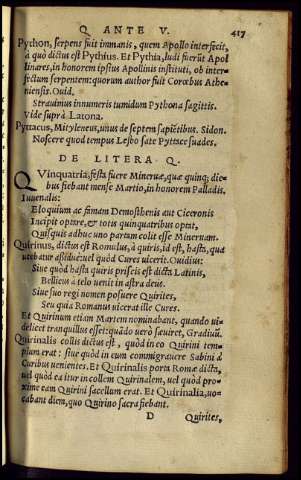 Q ANTE V. 417
Python, serpens fuit immanis, quem Apollo interfecit,
à quò dictus est Pythius. Et Pythia, ludi fuerūt Apol
linares, in honorem ipsius Apollinis instituti, ob inter-
fectum serpentem: quorum author fuit Corœbus Athe-
niensis. Ouid.
Strauimus innumeris tumidum Pythona sagittis.
Vide suprà Latona.
Pyttacus, Mityleneus, unus de septem sapiētibus. Sidon.
Noscere quod tempus Lesbo sate Pyttace suades.
DE LITERA Q.
QVinquatria, festa fuere Mineruæ, quæ quinq; die-
bus fiebant mense Martio, in honorem Palladis.
Iuuenalis:
Eloquium ac famam Demosthenis aut Ciceronis
Incipit optare, & totis quinquatribus optat,
Quisquis adhuc uno partam colit asse Mineruam.
Quirinus, dictus est Romulus, à quiris, id est, hasta, qua
utebatur assiduè: uel quòd Cures uicerit. Ouidius:
Siue quòd hasta quiris priscis est dicta Latinis,
Bellicus à telo uenit in astra deus.
Siue suo regi nomen posuere Quirites,
Seu quia Romanis uicerat ille Cures.
Et Quirinum etiam Martem nominabant, quando ui-
delicet tranquillus esset: quādo verò sæuiret, Gradiuū.
Quirinalis collis dictus est, quòd in eo Quirini tem-
plum erat: siue quòd in eum commigrauere Sabini à
Curibus uenientes. Et Quirinalis porta Romæ dicta,
uel quòd ea itur in collem Quirinalem, uel quòd pro-
xime eam Quirini sacellum erat. Et Quirinalia, uo-
cabant diem, quo Quirino sacra fiebant.
D Quirites,